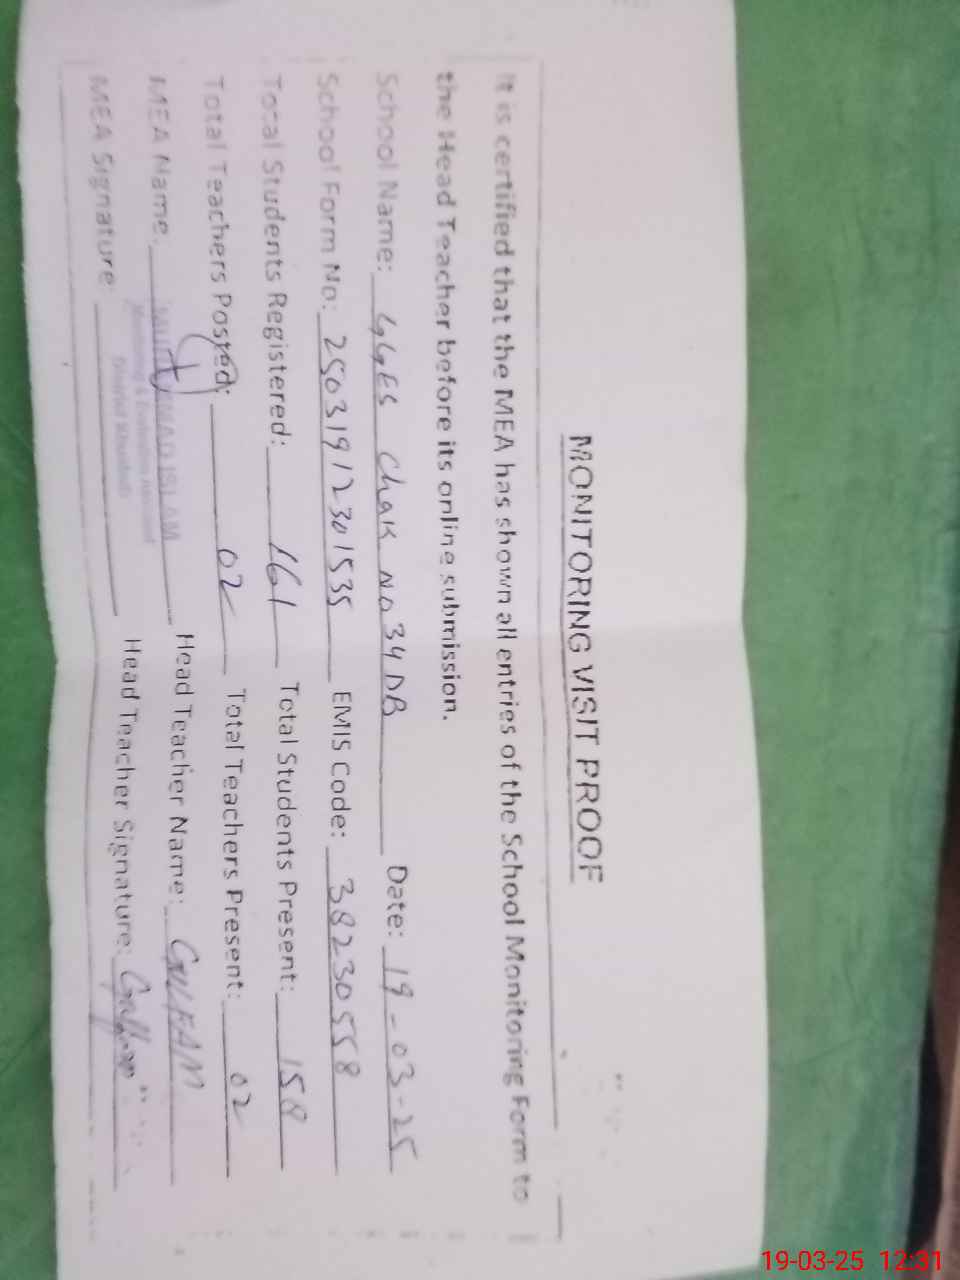 MONITORING VISIT PROOF
It is certified that the MEA has shown all entries of the School Monitoring Form to
the Head Teacher before its online submission.
School Name: GGES Chak No 34 DB Date: 19-03-25
School Form No: 25031912301535 EMIS Code: 38230558
Total Students Registered: 161 Total Students Present: 158
Total Teachers Posted: 02 Total Teachers Present: 02
MEA Name: MUHAMMAD ISLAM Head Teacher Name: GULFAM
Monitoring & Evaluation Assistant
District Khushab
MEA Signature: Head Teacher Signature: Gulfam
19-03-25 12:31